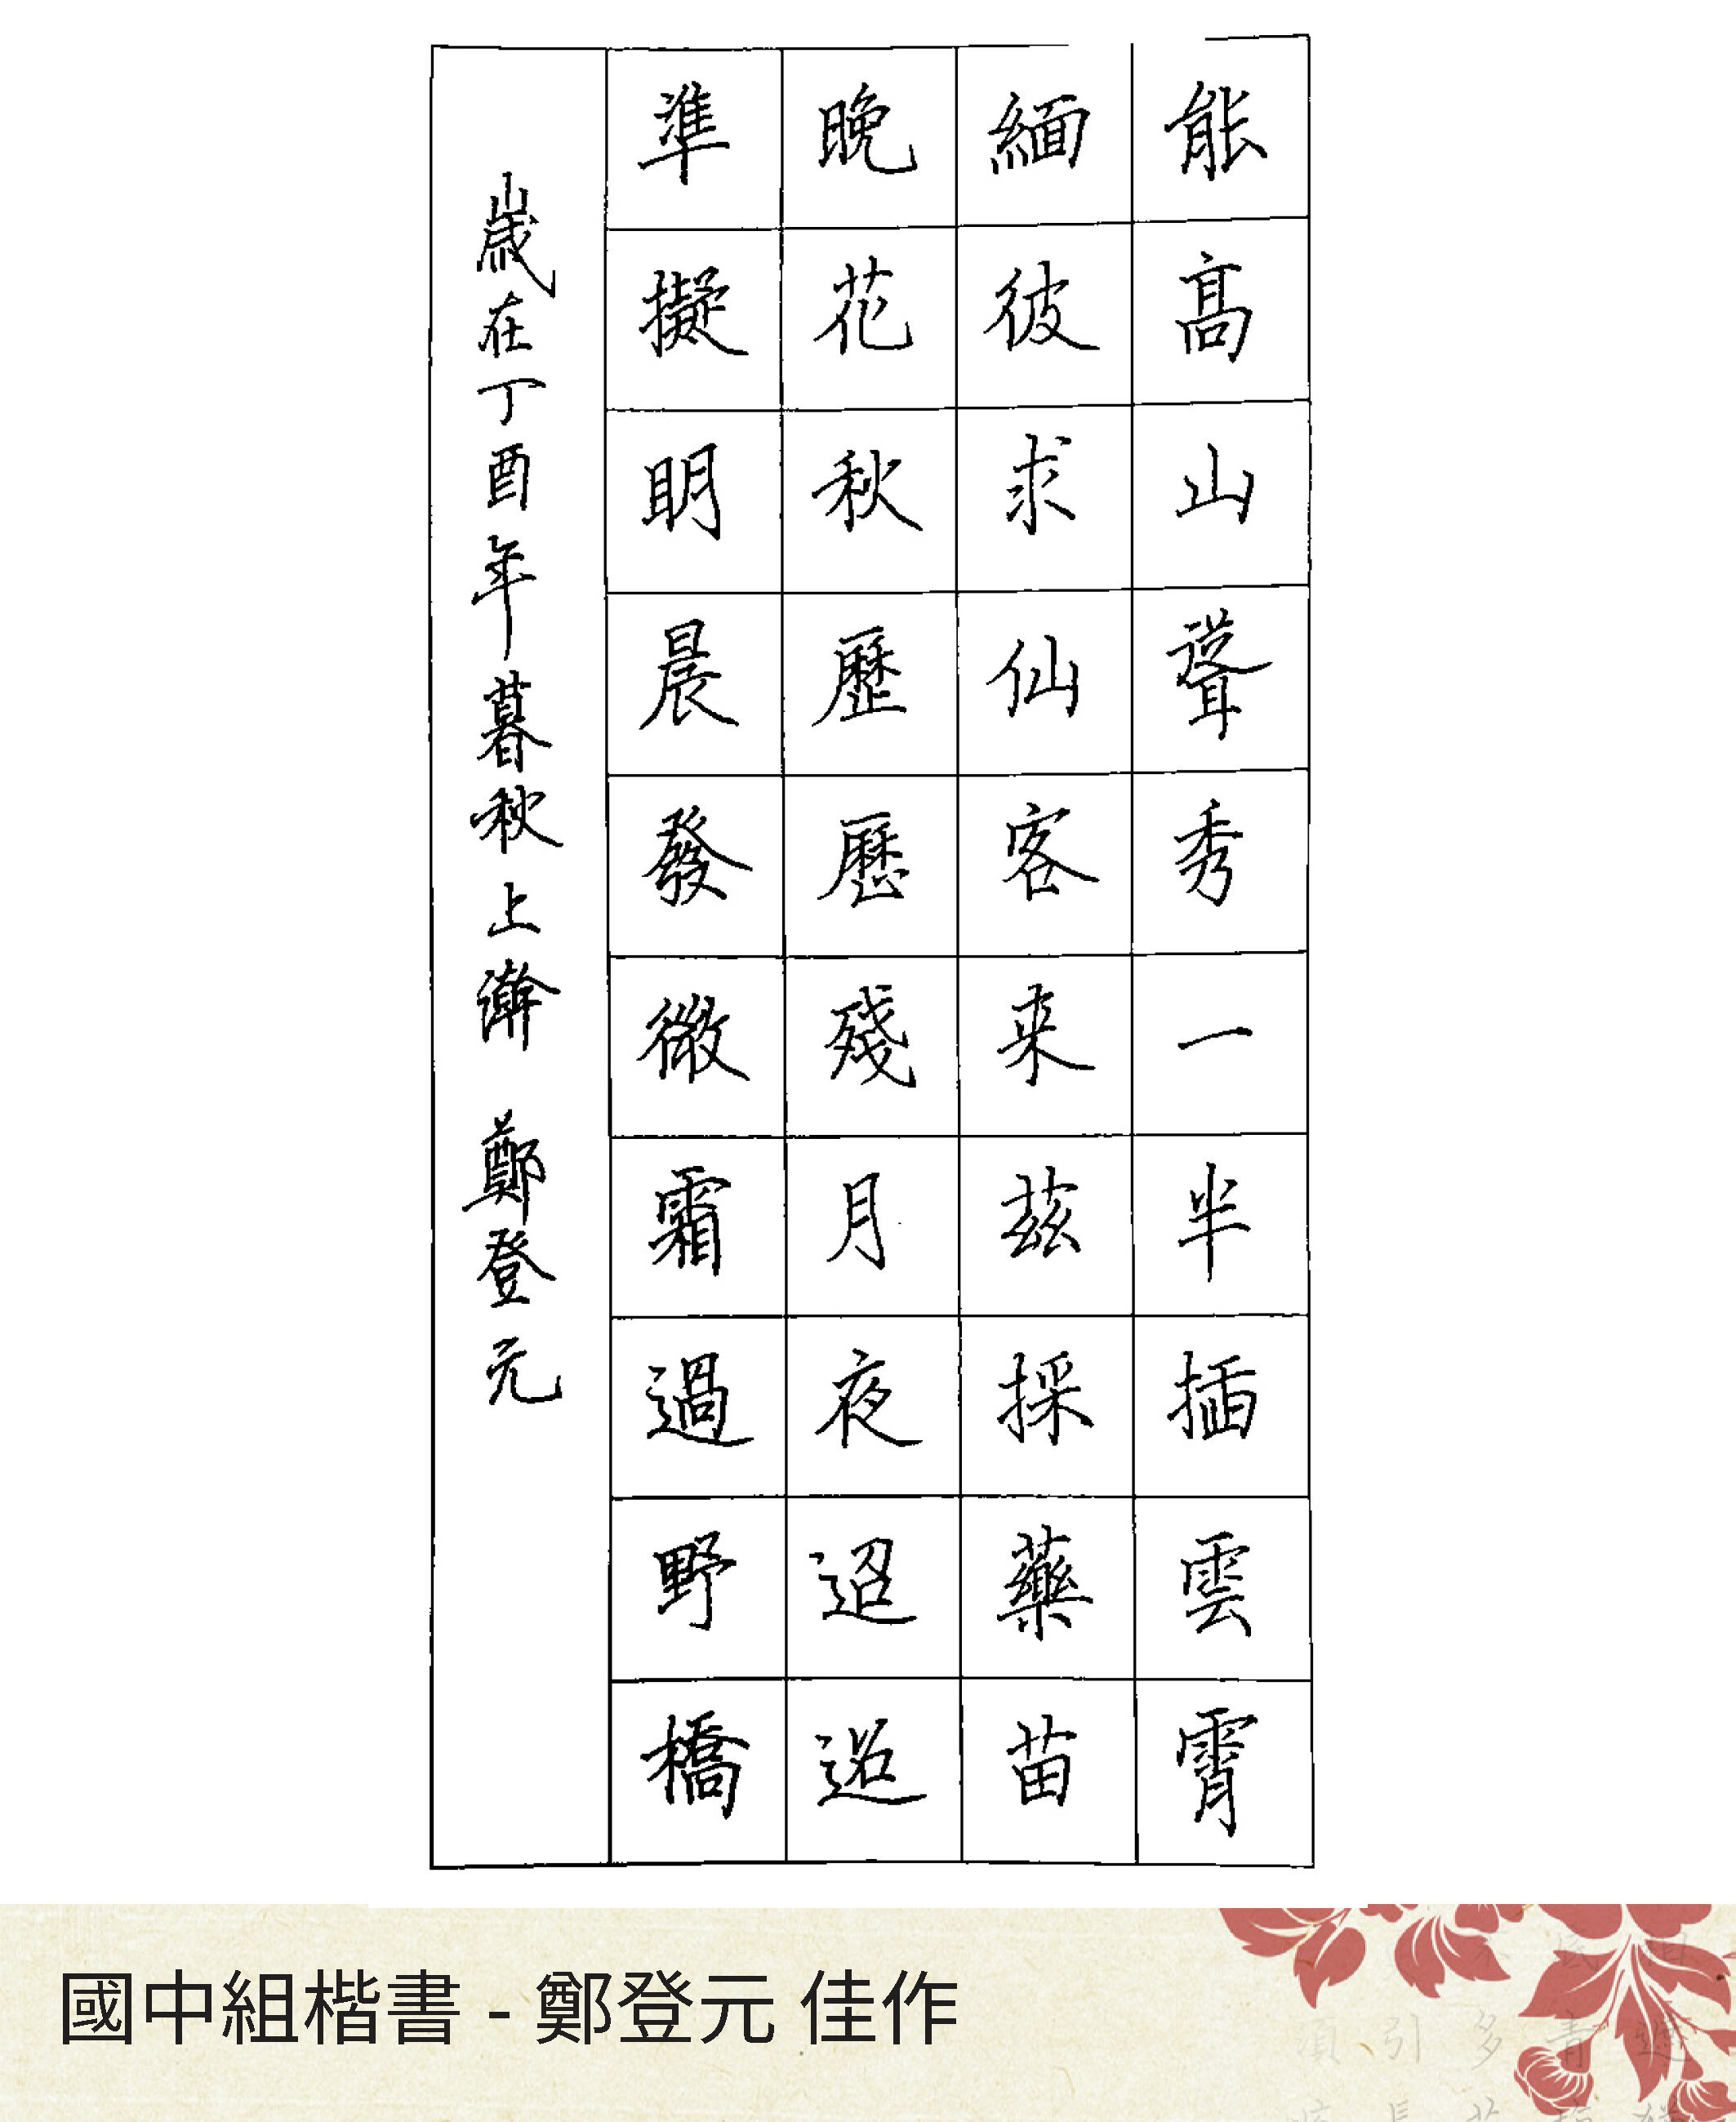 能高山聳秀一半插雲霄
緬彼求仙客来茲採藥苗
晚花秋歷歷殘月夜迢迢
準擬眀晨發微霜過野橋
歲在丁酉年暮秋上澣 鄭登元
國中組楷書 - 鄭登元 佳作